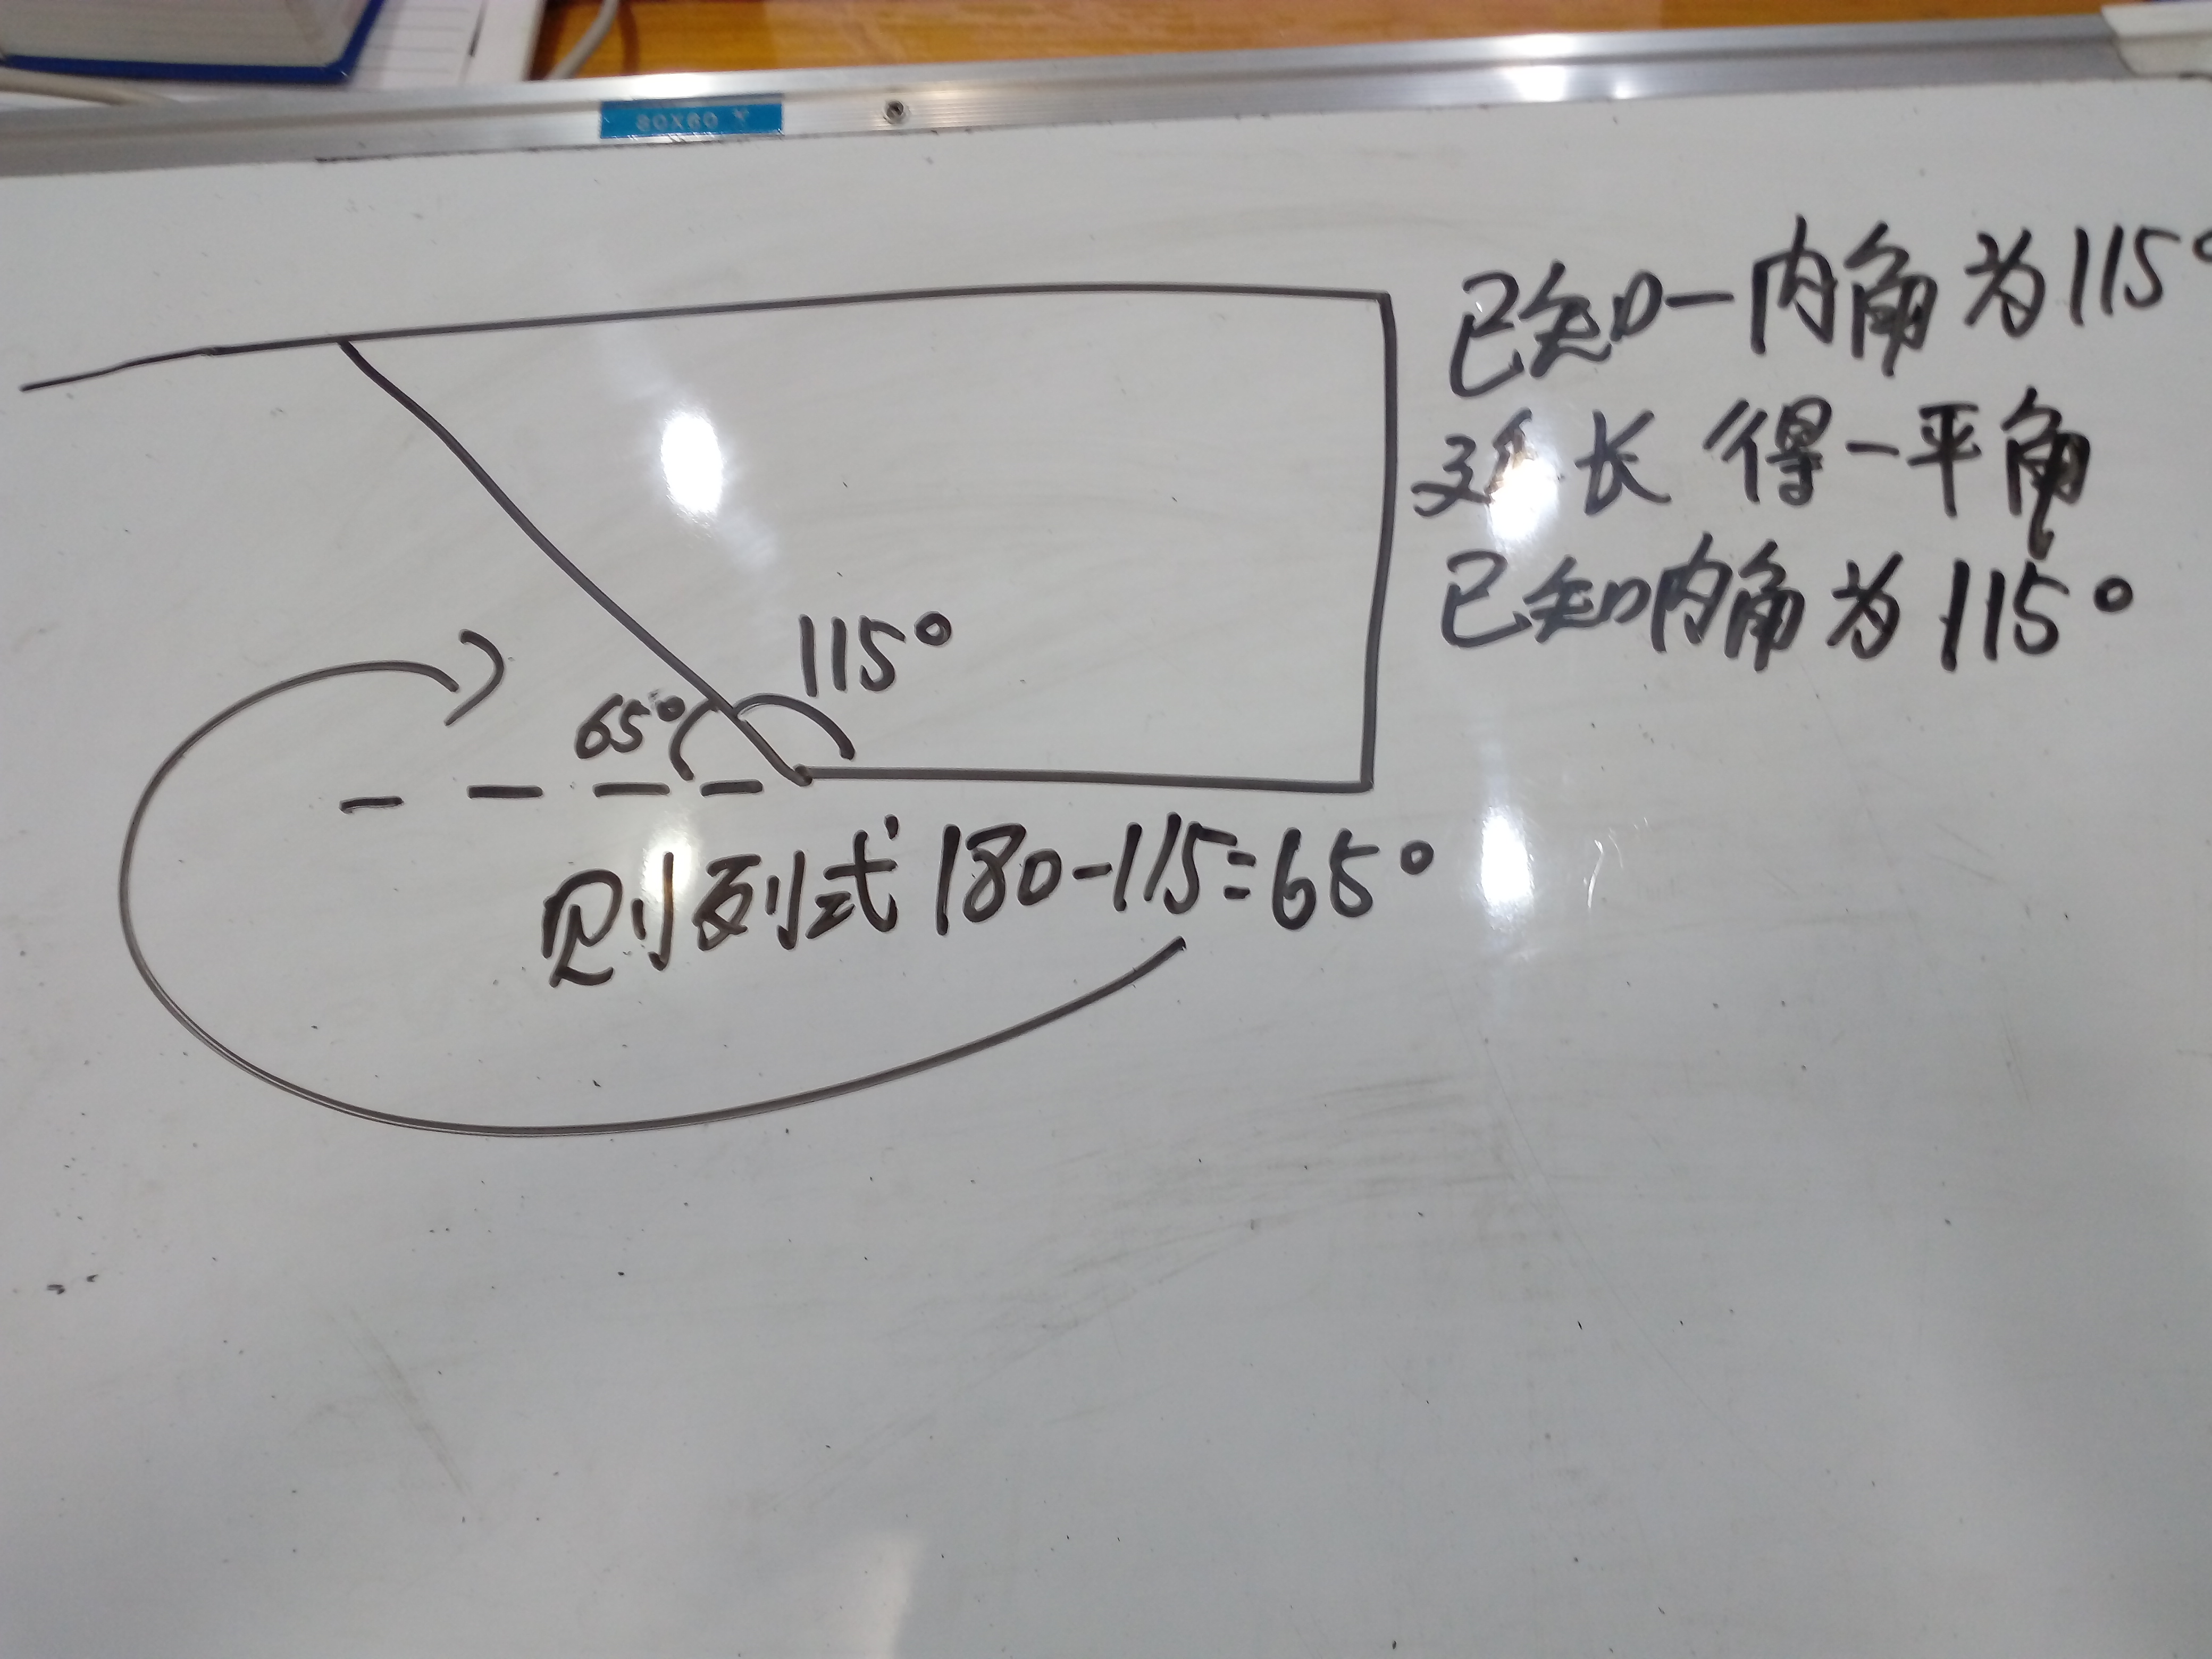 80X60 Y
已知一内角为115°
延长得一平角
已知内角为115°
115°
65°
则列式180-115=65°